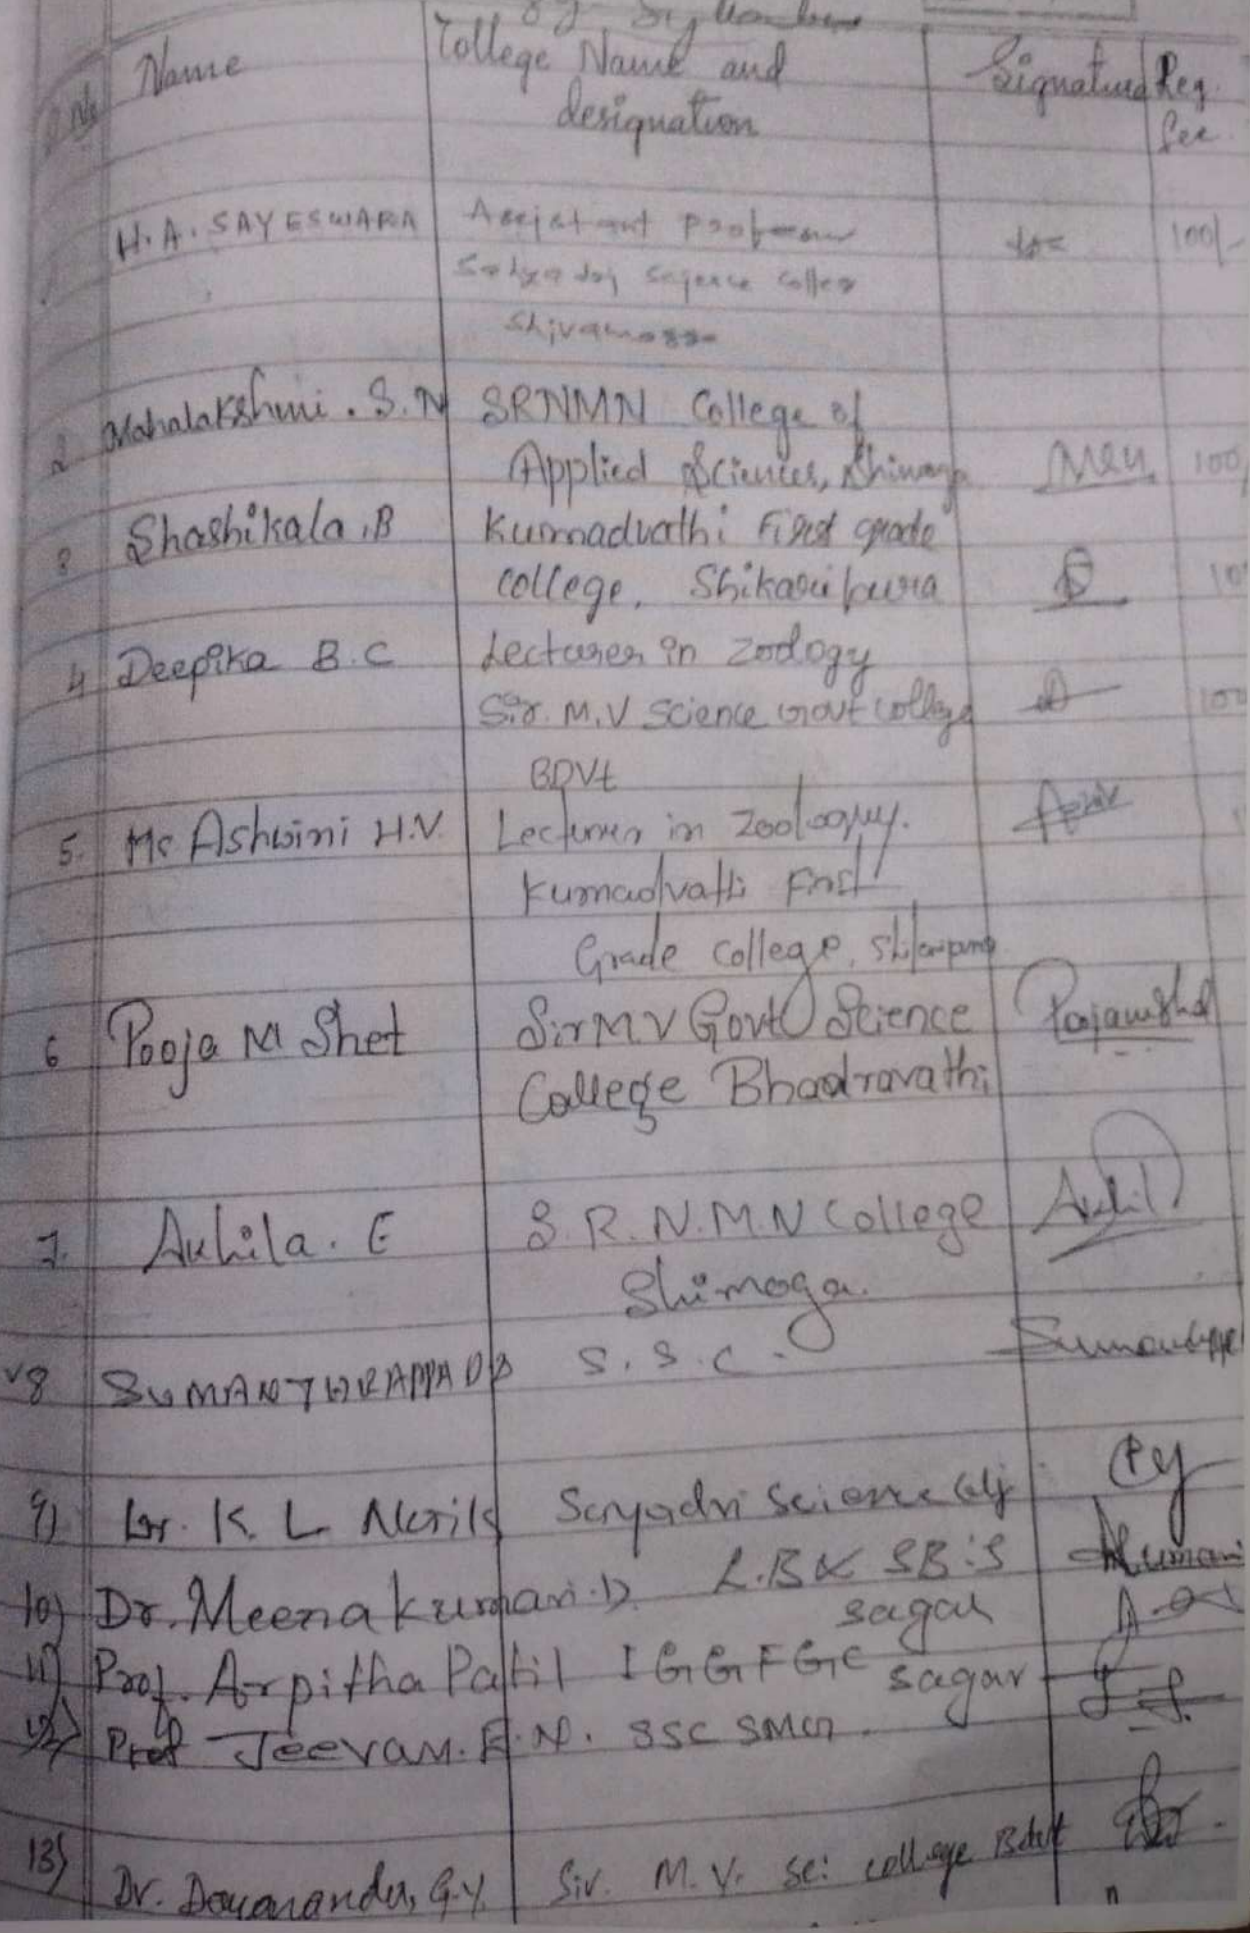 of Syllabus
Sl. No Name College Name and Signature Reg.
designation fee
H.A. SAYESWARA Assistant Professor 100/-
Sahyadri Science College
Shivamogga
2 Mahalakshmi. S.N SRNMN College of
Applied Sciences, Shimoga 100/
3 Shashikala .B Kumadvathi First grade
college, Shikaripura 10
4 Deepika B.C Lecturer in Zoology
Sir. M.V Science Govt College 100
BDVt
5. Ms Ashwini H.V. Lecturer in Zoology.
Kumadvathi First
Grade College, Shikaripura
6 Pooja M Shet Sir M V Govt Science Poojamshet
College Bhadravathi
7. Akhila. E S.R.N.M.N College Akhil
Shimoga.
8 SUMANTHRAPPA DB S.S.C. Sumanthrappa
9) Dr. K. L. Sahyadri Science Colg
10) Dr. Meenakumari.D L.B & SB'S Kumari
sagar
11) Prof. Arpitha Patil IGGFGC sagar
12) Prof Jeevan. E.N. SSC SMG
13) Dr. Dayananda, G.Y. Sir. M.V. Sc: college Bdvt
"